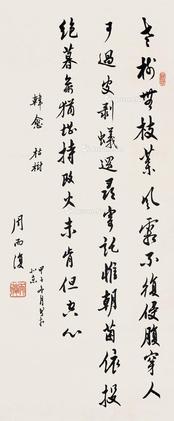 老樹無枝葉風霜不復侵腹穿人
可過皮剥蟻還尋寄託惟朝菌依投
絶暮禽猶堪持改火未肯但空心
韓愈 枯樹
周而復
北京